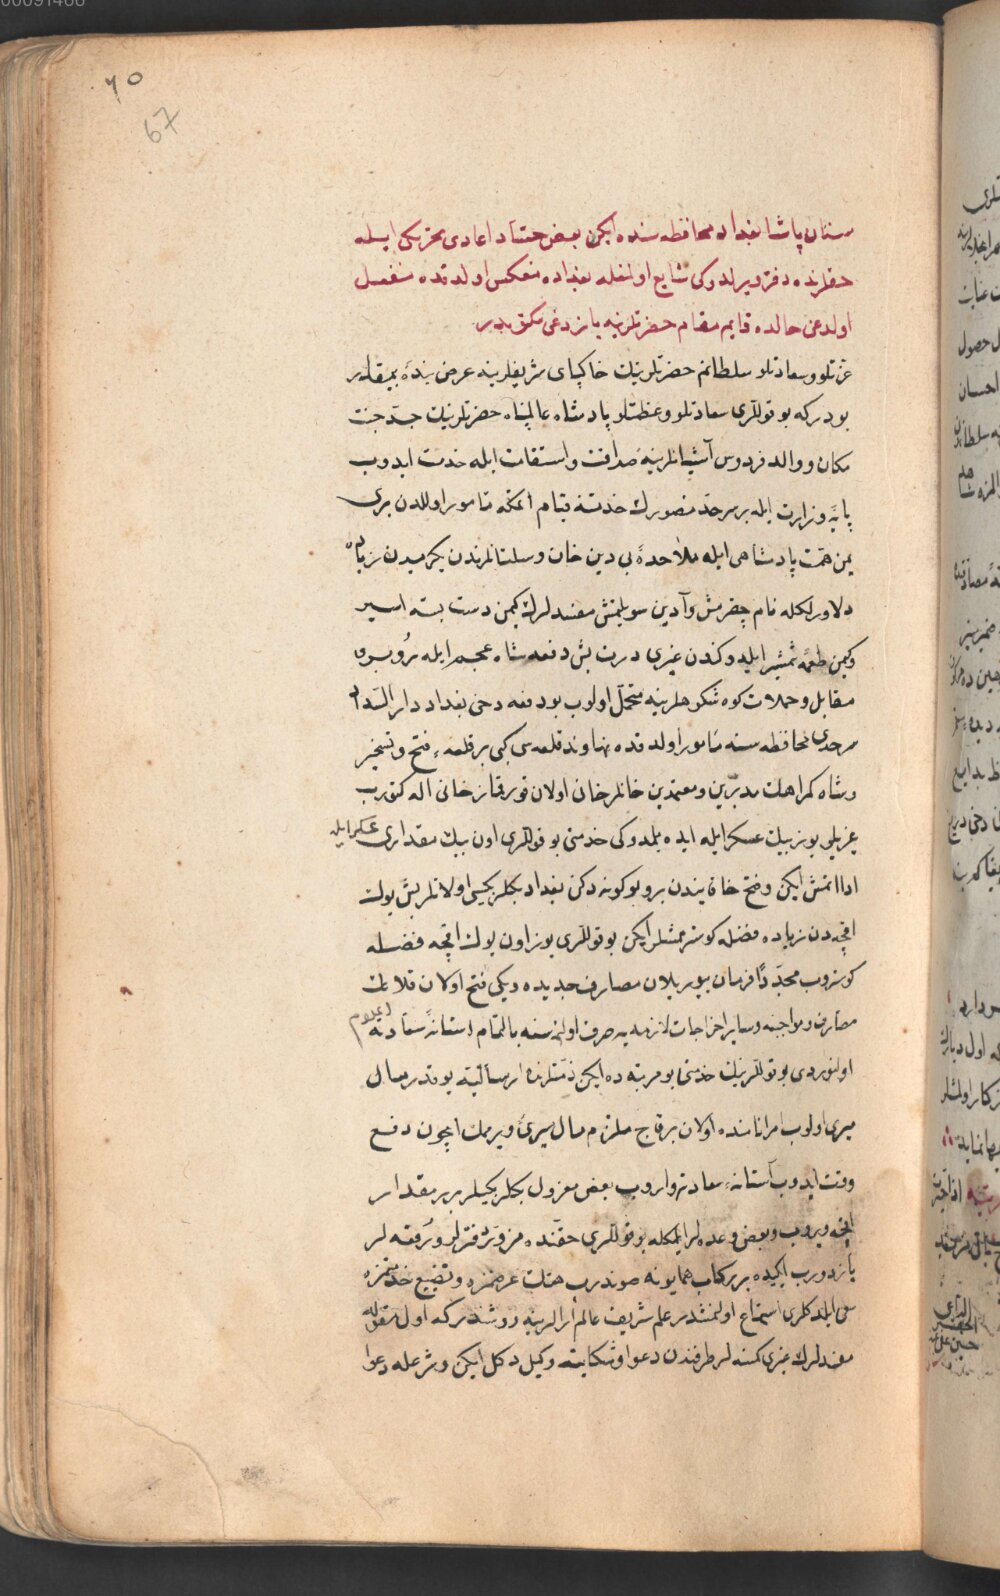 00091466
٦٥
67
سنان پاشا بغداد محافظه سنده ایکن بعض حسّاد اعادی تحریکی ایله
حقلرنده دفتر ویرلدوکی شایع اولنغله بغداده منعکس اولدقده منفعل
اولدغی حالده قایم مقام حضرتلرینه یازدغی مکتوبدر
عزتلو وسعادتلو سلطانم حضرتلرینك خاکپای شریفلرینه عرض بندهٔ بیمقدار
بودرکه بو قوللری سعادتلو وعظمتلو پادشاه عالمپناه حضرتلرینك جدّ جنت
مکان و والد فردوس آشیانلرینه صداقت واستقامت ایله خدمت ایدوب
پایهٔ وزارت ایله بر سرحدّ منصورك خدمتنه قیام اتمکه مامور اوللدن بری
یمن همّت پادشاهی ایله ملاحدهٔ بی دین خان وسلتانلرندن یکرمیدن زیاده
دلاورلکله نام چقرمش وآدین سویلتمش مفسدلرك کیمن دست بسته اسیر
وکیمن طعمهٔ شمشیر ایلدوکندن غیری درت بش دفعه شاه عجم ایله روبرو
مقابل وحملات کوه شکوهلرینه متحمّل اولوب بو دفعه دخی بغداد دار السّلام
سرحدی محافظه سنه مامور اولدقده نهاوند قلعه سی کبی بر قلعه‌ء فتح وتسخیر
وشاه کمراهك مدبّرین ومعتمدین خانلرخان اولان قورقماز خانی اله کتورب
غیریلر یوز بیك عسکر ایله ایده بلمدوکی خدمتی بو قوللری اون بیك مقداری عسکر ایله
ادا اتمش ایکن وفتح خاقانیدن برو بو کونه دکن بغداد بکلربکیسی اولانلر بش یوك
اقچه دن زیاده فضله کوسترمشلر ایکن بو قوللری یوز اون یوك اقچه فضله
کوستروب مجدّدًا فرمان بیوریلان مصارف جدیده ویکی فتح اولان قلاعك
مصارف ومواجبنه وسایر اخراجات لازمه یه صرف اولنه سنه بالتمام استانهٔ سعادته اعلام
اولنوردی بو قوللرینك خدمتی بو مرتبه ده ایکن ذمّتلرنده ارسالیّه بو قدر مال
میری اولوب امرانامنده اولان بر قاج ملتزم مال میریٔ ویرمك ایچون دفع
وقت ایدوب آستانه‌ء سعادته واروب بعض معزول بکلربکیلر بر بر مقدار
اقچه ویروب وبعض وعده لر ایلمکله بو قوللری حقنده مزوّر دفترلر ورقعه لر
یازدورب ایکیده بر رکاب همایونه صوندرب هتك عرضمزه وتضییع خدمتمزه
سعی ایلدکلری استماع اولنمشدر علم شریف عالم ارالرینه روشندرکه اول مقوله
مفسدلرك غیری کمسنه لر طرفندن دعوا وشکایته وکیل دکل ایکن وشرعله دعوا